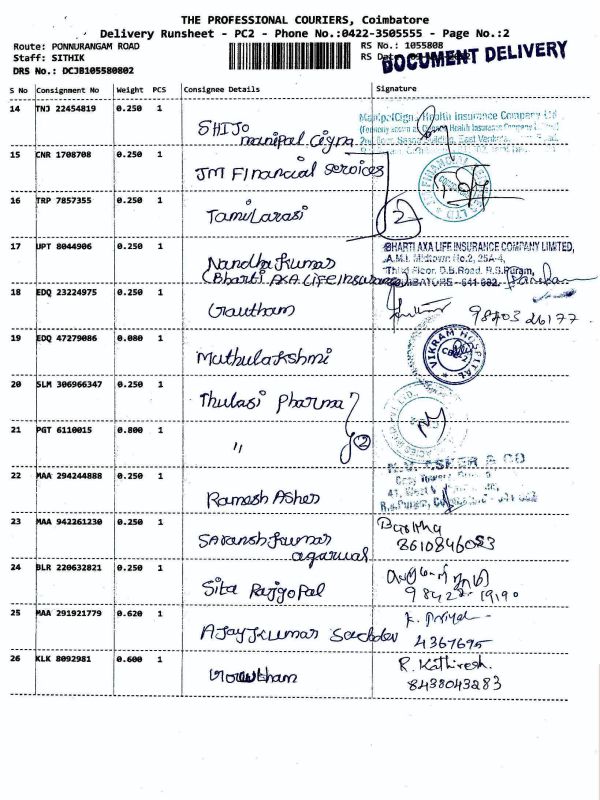 THE PROFESSIONAL COURIERS, Coimbatore
Delivery Runsheet - PC2 - Phone No.:0422-3505555 - Page No.:2
Route: PONNURANGAM ROAD
Staff: SITHIK
DRS No.: DCJB105580802
RS No.: 1055808
RS
DOCUMENT DELIVERY
S No Consignment No Weight PCS Consignee Details Signature
14 TNJ 22454819 0.250 1
SHIJO
manipal Cigna
ManipalCigna Health Insurance Company Ltd
15 CNR 1708708 0.250 1
JM Financial services
16 TRP 7857355 0.250 1
Tamilarasi
2
17 UPT 8044906 0.250 1
Nandha Kumar
(Bharti AXA Life Insurance
BHARTI AXA LIFE INSURANCE COMPANY LIMITED,
A.M.I. Midtown No.2, 25A-4,
Third Floor, D.B.Road, R.S.Puram,
COIMBATORE - 641 002.
18 EDQ 23224975 0.250 1
Gautham
98403 26177
19 EDQ 47279086 0.080 1
Muthulakshmi
VIKRAM HOSPITAL
20 SLM 306966347 0.250 1
Thulasi Pharma
21 PGT 6110015 0.800 1
"
2
22 MAA 294244888 0.250 1
Ramesh Asher
ASHER & CO
23 MAA 942261230 0.250 1
Saransh Kumar
agarwal
8610846023
24 BLR 220632821 0.250 1
Sita Rajgopal
98422-19190
25 MAA 291921779 0.620 1
Ajay Kumar Sachdev
K. Priya
4367695
26 KLK 8092981 0.600 1
Gowtham
R. Kathiresh.
8438043283